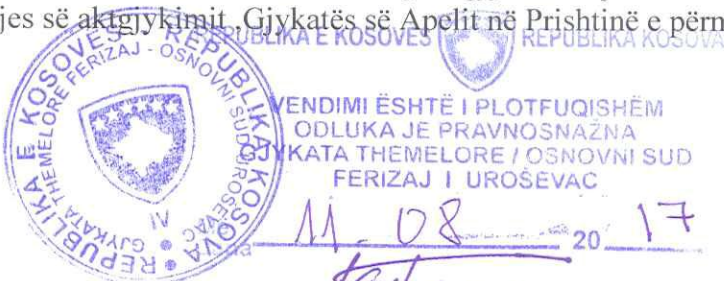 jes së aktgjykimit ,Gjykatës së Apelit në Prishtinë e përm
REPUBLIKA E KOSOVËS REPUBLIKA KOSOVA
REPUBLIKA E KOSOVËS • REPUBLIKA KOSOVA
GJYKATA THEMELORE FERIZAJ - OSNOVNI SUD UROŠEVAC
IV
VENDIMI ËSHTË I PLOTFUQISHËM
ODLUKA JE PRAVNOSNAŽNA
GJYKATA THEMELORE / OSNOVNI SUD
FERIZAJ I UROŠEVAC
na 11-08 20 17